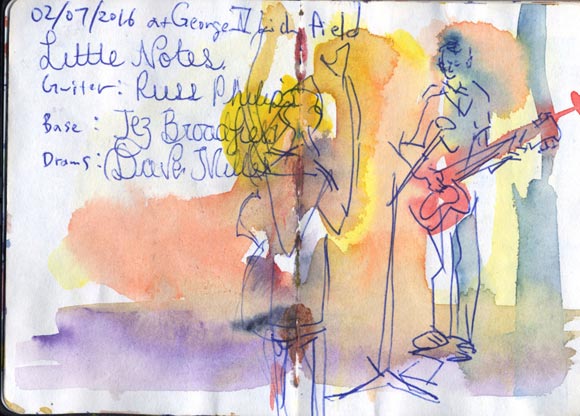 02/07/2016 at George IV Lich field
Little Notes.
Guiter: Russ Philips
Base: Jez Broadfield
Drums: Dave